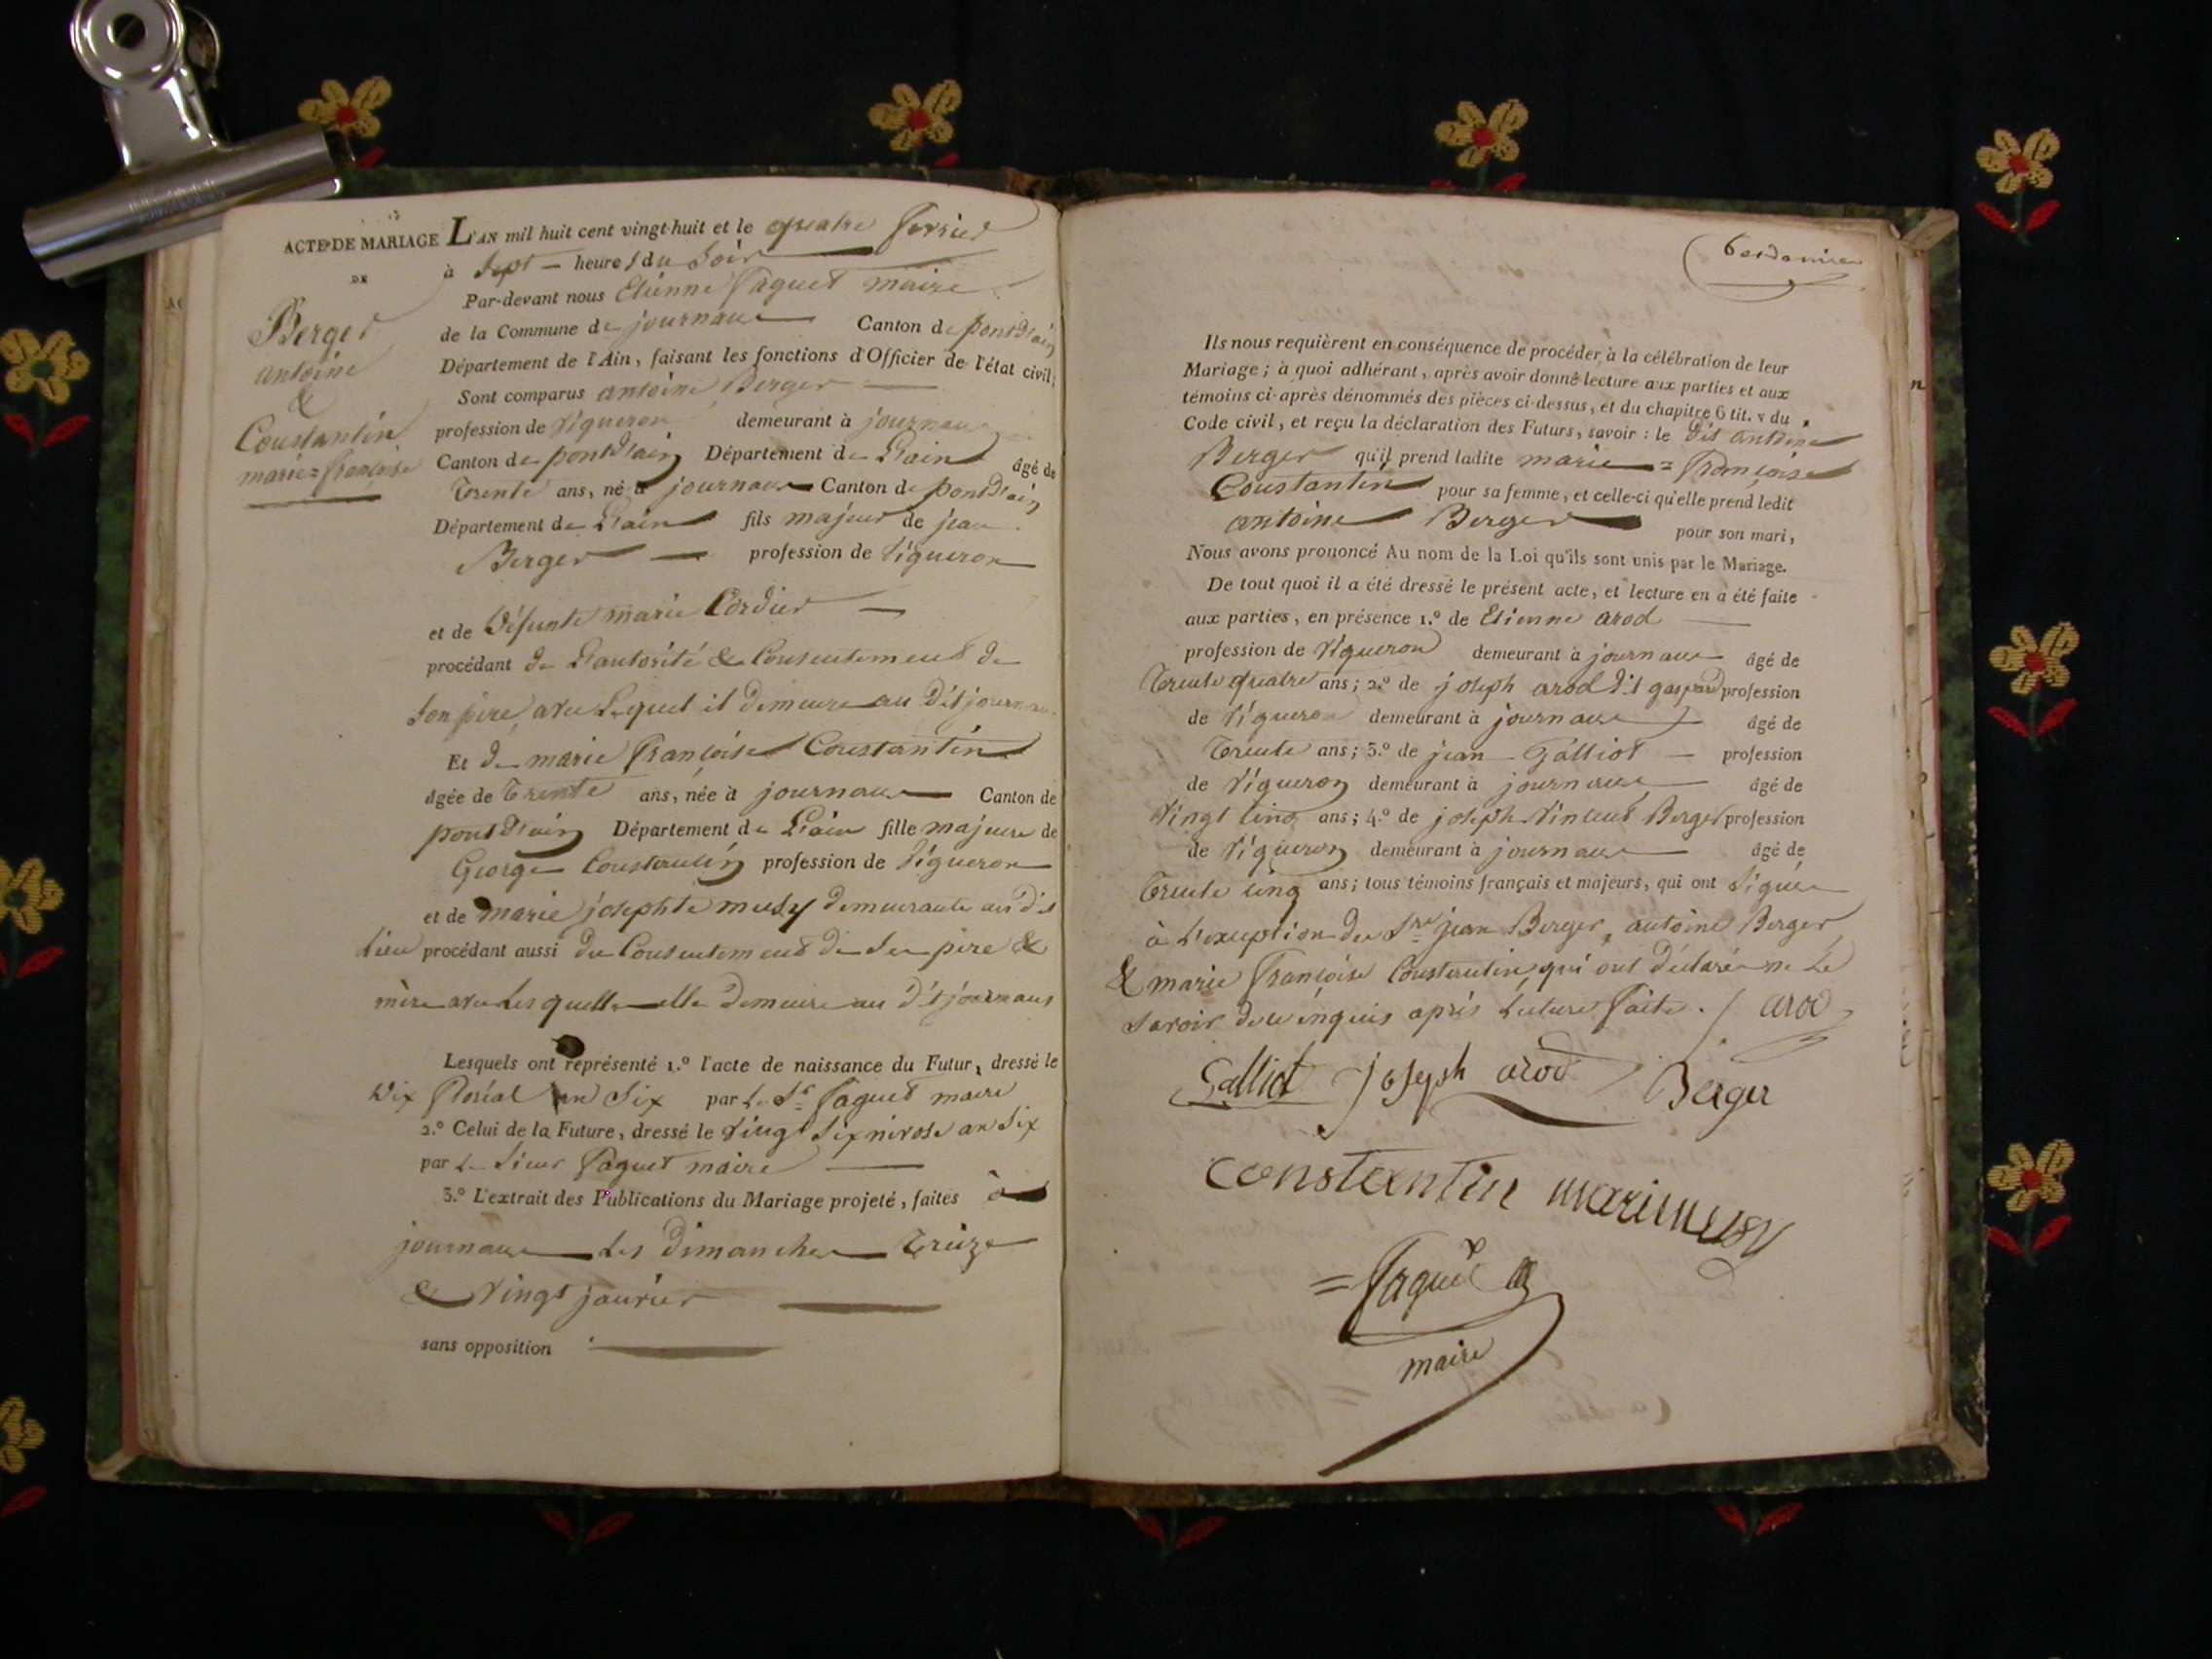 ACTE DE MARIAGE
DE
Berger
antoine
&
Constantin
marie=françoise
L'AN mil huit cent vingt-huit et le quatre fevrier
à Sept — heures du Soir
Par-devant nous Etienne Paquet maire
de la Commune de journans Canton de pontd'ain
Département de l'Ain, faisant les fonctions d'Officier de l'état civil;
Sont comparus antoine Berger
profession de Vigneron demeurant à journans
Canton de pontd'ain Département de L'ain âgé de
Trente ans, né à journans Canton de pontd'ain
Département de L'ain fils majeur de jean
Berger — profession de Vigneron
et de Défunte marie Cordier
procédant de L'autorité & Consentement de
Son père avec Lequel il demeure au Dit journans
Et de marie françoise Constantin
âgée de Trente ans, née à journans Canton de
pontd'ain Département de L'ain fille majeure de
George Constantin profession de Vigneron
et de marie josephte musy demeurants au dit
Lieu procédant aussi du Consentement de Ses père &
mère avec Lesquelles elle demeure au dit journans
Lesquels ont représenté 1.º l'acte de naissance du Futur, dressé le
Dix floréal an Six par Le Sr Paquet maire
2.º Celui de la Future, dressé le Vingt Six nivose an Six
par Le Sieur Paquet maire
3.º L'extrait des Publications du Mariage projeté, faites à
journans Les Dimanches Treize
& Vingt janvier
sans opposition
Ils nous requièrent en conséquence de procéder à la célébration de leur
Mariage; à quoi adhérant, après avoir donné lecture aux parties et aux
témoins ci-après dénommés des pièces ci-dessus, et du chapitre 6 tit. v du
Code civil, et reçu la déclaration des Futurs, savoir: le Dit antoine
Berger qu'il prend ladite marie=françoise
Constantin pour sa femme, et celle-ci qu'elle prend ledit
antoine Berger pour son mari,
Nous avons prononcé Au nom de la Loi qu'ils sont unis par le Mariage.
De tout quoi il a été dressé le présent acte, et lecture en a été faite
aux parties, en présence 1.º de Etienne arod
profession de Vigneron demeurant à journans âgé de
Trente quatre ans; 2.º de joseph arod dit gaspard profession
de Vigneron demeurant à journans âgé de
Trente ans; 3.º de jean Galliot — profession
de Vigneron demeurant à journans âgé de
Vingt cinq ans; 4.º de joseph Vincent Berger profession
de Vigneron demeurant à journans âgé de
Trente cinq ans; tous témoins français et majeurs, qui ont Signés
à L'exception des Srs jean Berger, antoine Berger
& marie françoise Constantin qui ont déclaré ne Le
Savoir de ce enquis après Lecture faite. / arod
Galliot joseph arod Berger
constantin marie musy
= Paquet
maire